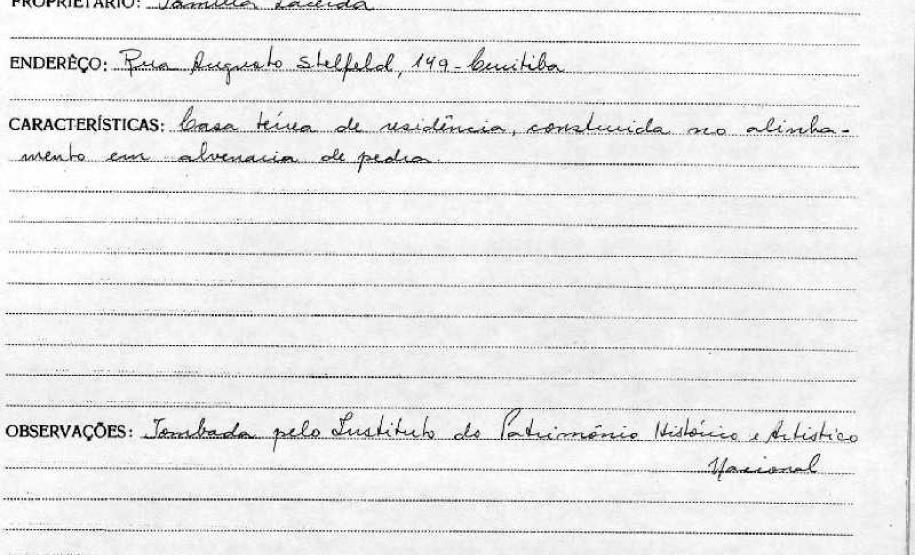 PROPRIETÁRIO: Família Lacerda
ENDERÊÇO: Rua Augusto Stelfeld, 149 - Curitiba
CARACTERÍSTICAS: Casa térrea de residência, construida no alinha-
mento em alvenaria de pedra.
OBSERVAÇÕES: Tombada pelo Instituto do Patrimônio Histórico e Artistico
Nacional